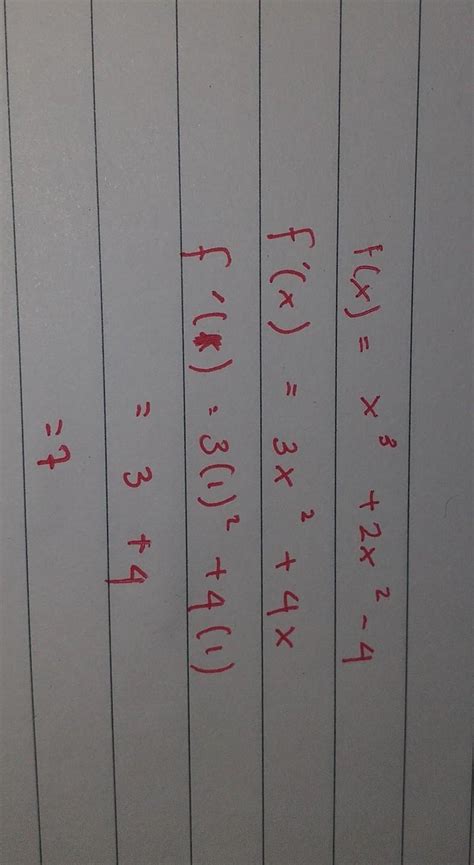 f(x) = x³ + 2x² - 4
f'(x) = 3x² + 4x
f'() = 3(1)² + 4(1)
= 3 + 4
= 7